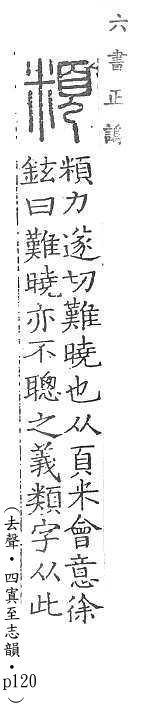 六書正譌
䫫
䫫力遂切難曉也从頁米會意徐
鉉曰難曉亦不聰之義類字从此
(去聲．四寘至志韻．p120)